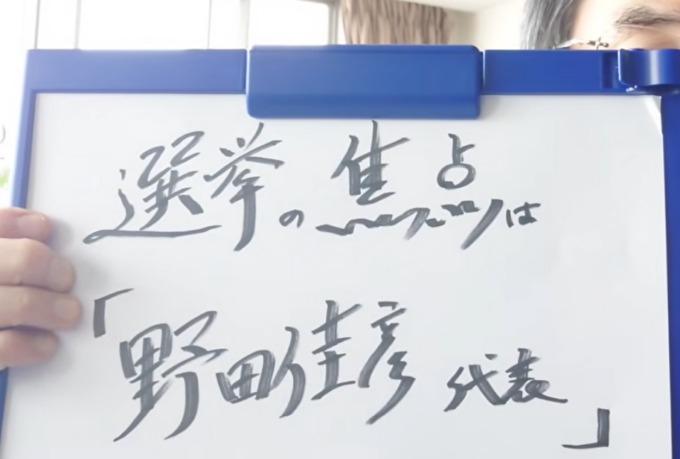 選挙の焦点は
「野田佳彦代表」